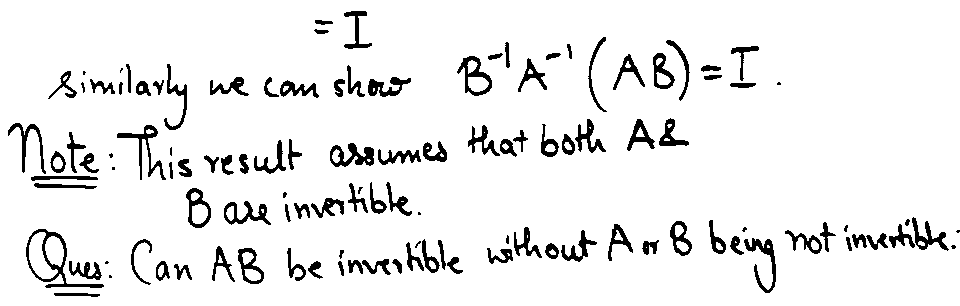 = I
Similarly we can show B⁻¹A⁻¹(AB) = I.
Note: This result assumes that both A &
B are invertible.
Ques: Can AB be invertible without A or B being not invertible.